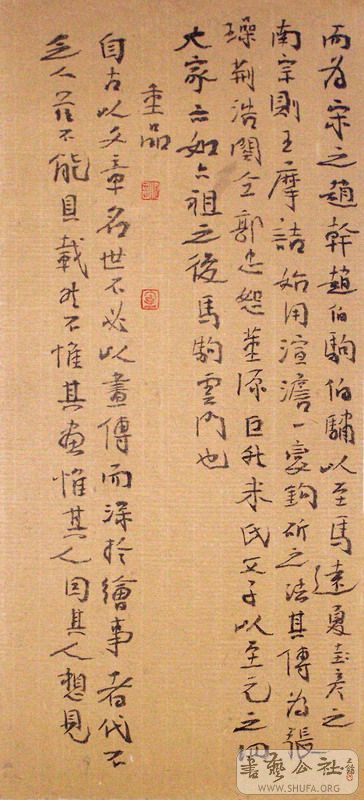 而為宋之趙幹趙伯駒伯驌以至馬遠夏圭彥之
南宗則王摩詰始用渲澹一變鉤斫之法其傳為張
璪荊浩關仝郭忠恕董源巨然米氏父子以至元之四
大家亦如六祖之後馬駒雲門也
重品
自古以文章名世不必以畫傳而深於繪事者代不
乏人茲不能具載然不惟其畫惟其人因其人想見
書藝公社
WWW.SHUFA.ORG